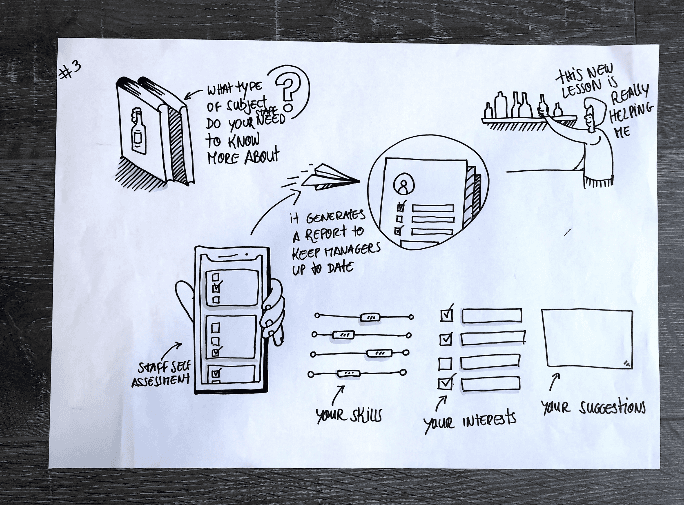 #3
WHAT TYPE
OF SUBJECT
DO YOUR STAFF NEED
TO KNOW
MORE ABOUT
?
THIS NEW
LESSON IS
REALLY
HELPING
ME
IT GENERATES
A REPORT TO
KEEP MANAGERS
UP TO DATE
STAFF SELF
ASSESSMENT
YOUR SKILLS
YOUR INTERESTS
YOUR SUGGESTIONS